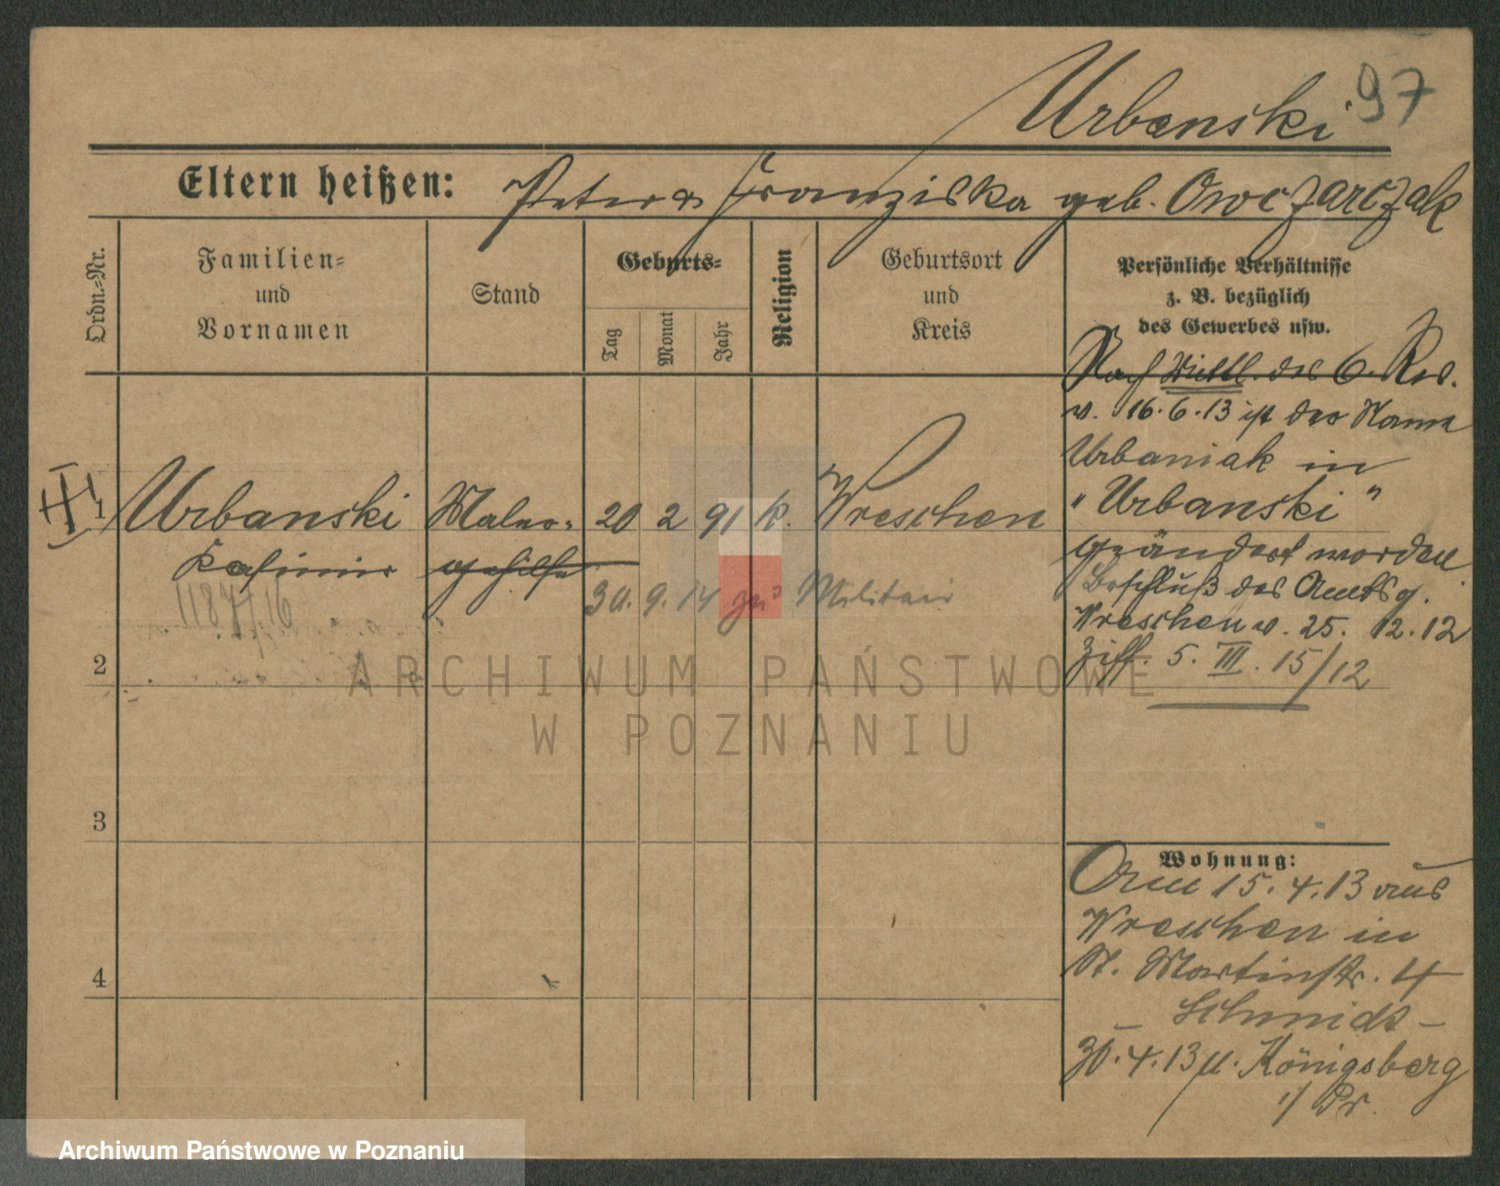 Urbanski 97
Eltern heißen: Peter & Franziska geb. Owczarczak
Ordn.-Nr.
Familien-
und
Vornamen
Stand
Geburts-
Tag
Monat
Jahr
Religion
Geburtsort
und
Kreis
Persönliche Verhältnisse
z. B. bezüglich
des Gewerbes usw.
Nach Mittl. des 6. Rev.
v. 16.6.13 ist der Name
Urbaniak in
"Urbanski"
geändert worden
Beschluß des Amtsg.
Wreschen v. 25. 12. 12
Ziff. 5. III. 15/12
1 Urbanski Maler- 20 2 91 k. Wreschen
Kasimir gehilfe
30. 9. 14 zu Militair
1187/16
2
3
4
Wohnung:
Am 15. 4. 13 aus
Wreschen in
St. Martinstr. 4
Schmids-
30. 4. 13 n. Königsberg
i/ Pr.
ARCHIWUM PAŃSTWOWE
W POZNANIU
Archiwum Państwowe w Poznaniu